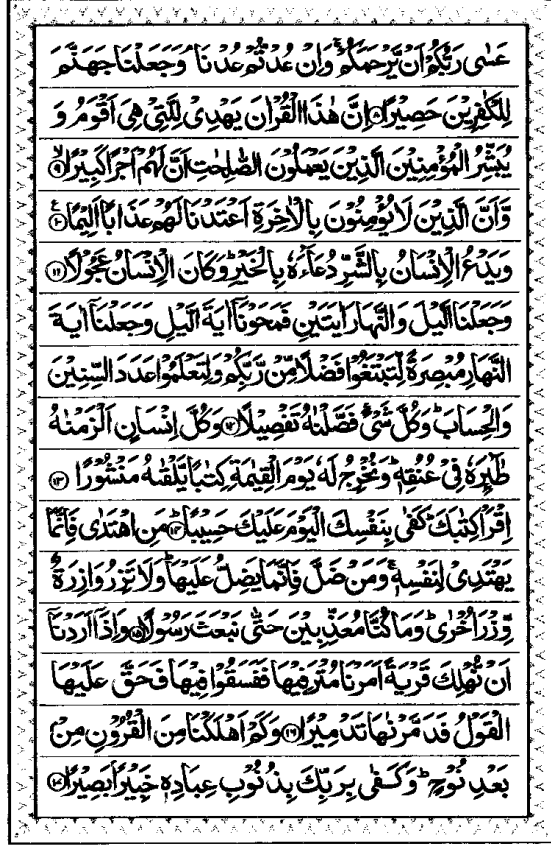 عَسٰى رَبُّكُمْ اَنْ يَّرْحَمَكُمْ ۚ وَاِنْ عُدْتُّمْ عُدْنَا ۘ وَجَعَلْنَا جَهَنَّمَ
لِلْكٰفِرِيْنَ حَصِيْرًا ﴿۸﴾ اِنَّ هٰذَا الْقُرْاٰنَ يَهْدِىْ لِلَّتِىْ هِىَ اَقْوَمُ وَ
يُبَشِّرُ الْمُؤْمِنِيْنَ الَّذِيْنَ يَعْمَلُوْنَ الصّٰلِحٰتِ اَنَّ لَهُمْ اَجْرًا كَبِيْرًا ۙ﴿۹﴾
وَّاَنَّ الَّذِيْنَ لَا يُؤْمِنُوْنَ بِالْاٰخِرَةِ اَعْتَدْنَا لَهُمْ عَذَابًا اَلِيْمًا ﴿۱۰﴾
وَيَدْعُ الْاِنْسَانُ بِالشَّرِّ دُعَآءَهٗ بِالْخَيْرِ ؕ وَكَانَ الْاِنْسَانُ عَجُوْلًا ﴿۱۱﴾
وَجَعَلْنَا الَّيْلَ وَالنَّهَارَ اٰيَتَيْنِ فَمَحَوْنَاۤ اٰيَةَ الَّيْلِ وَجَعَلْنَاۤ اٰيَةَ
النَّهَارِ مُبْصِرَةً لِّتَبْتَغُوْا فَضْلًا مِّنْ رَّبِّكُمْ وَلِتَعْلَمُوْا عَدَدَ السِّنِيْنَ
وَالْحِسَابَ ؕ وَكُلَّ شَىْءٍ فَصَّلْنٰهُ تَفْصِيْلًا ﴿۱۲﴾ وَكُلَّ اِنْسَانٍ اَلْزَمْنٰهُ
طٰٓئِرَهٗ فِىْ عُنُقِهٖ ؕ وَنُخْرِجُ لَهٗ يَوْمَ الْقِيٰمَةِ كِتٰبًا يَّلْقٰىهُ مَنْشُوْرًا ﴿۱۳﴾
اِقْرَاْ كِتٰبَكَ ؕ كَفٰى بِنَفْسِكَ الْيَوْمَ عَلَيْكَ حَسِيْبًا ﴿۱۴﴾ مَنِ اهْتَدٰى فَاِنَّمَا
يَهْتَدِىْ لِنَفْسِهٖ ۚ وَمَنْ ضَلَّ فَاِنَّمَا يَضِلُّ عَلَيْهَا ؕ وَلَا تَزِرُ وَازِرَةٌ
وِّزْرَ اُخْرٰى ؕ وَمَا كُنَّا مُعَذِّبِيْنَ حَتّٰى نَبْعَثَ رَسُوْلًا ﴿۱۵﴾ وَاِذَاۤ اَرَدْنَاۤ
اَنْ نُّهْلِكَ قَرْيَةً اَمَرْنَا مُتْرَفِيْهَا فَفَسَقُوْا فِيْهَا فَحَقَّ عَلَيْهَا
الْقَوْلُ فَدَمَّرْنٰهَا تَدْمِيْرًا ﴿۱۶﴾ وَكَمْ اَهْلَكْنَا مِنَ الْقُرُوْنِ مِنْۢ
بَعْدِ نُوْحٍ ؕ وَكَفٰى بِرَبِّكَ بِذُنُوْبِ عِبَادِهٖ خَبِيْرًۢا بَصِيْرًا ﴿۱۷﴾